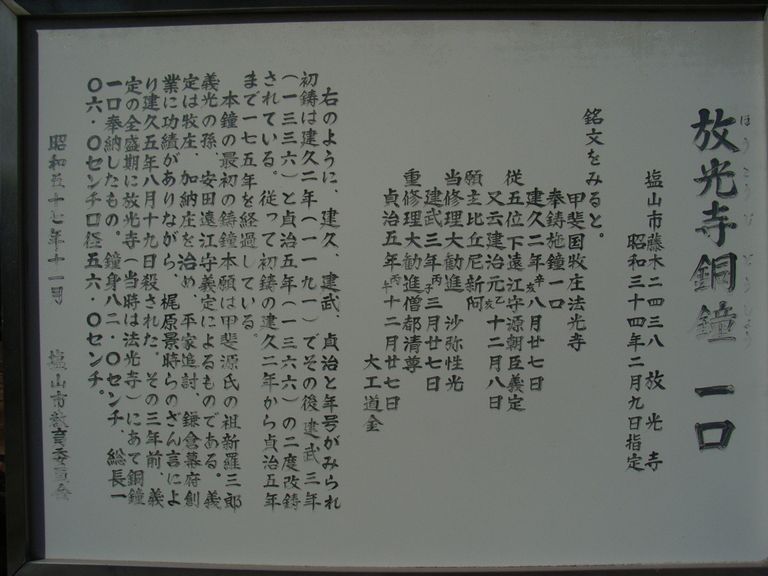 放光寺銅鐘 一口
塩山市藤木二四三八 放光寺
昭和三十四年二月九日指定
銘文をみると。
甲斐国牧庄法光寺
奉鋳施鐘一口
建久二年辛亥八月廿七日
従五位下遠江守源朝臣義定
又云建治元乙亥十二月八日
願主比丘尼新阿
当修理大勧進 沙弥性光
建武三年丙子三月廿七日
重修理大勧進僧都清尊
貞治五年丙午十二月廿七日
大工道金
右のように、建久、建武、貞治と年号がみられ
初鋳は建久二年(一一九一)でその後建武三年
(一三三六)と貞治五年(一三六六)の二度改鋳
されている。従って初鋳の建久二年から貞治五年
まで一七五年を経過している。
本鐘の最初の鋳鐘本願は甲斐源氏の祖新羅三郎
義光の孫、安田遠江守義定によるものである。義
定は牧庄、加納庄を治め、平家追討、鎌倉幕府創
業に功績がありながら、梶原景時らのざん言によ
り建久五年八月十九日殺された。その三年前、義
定の全盛期に放光寺(当時は法光寺)にあて銅鐘
一口奉納したもの。鐘身八二・〇センチ、総長一
〇六・〇センチ口径五六・〇センチ。
昭和五十七年十一月 塩山市教育委員会